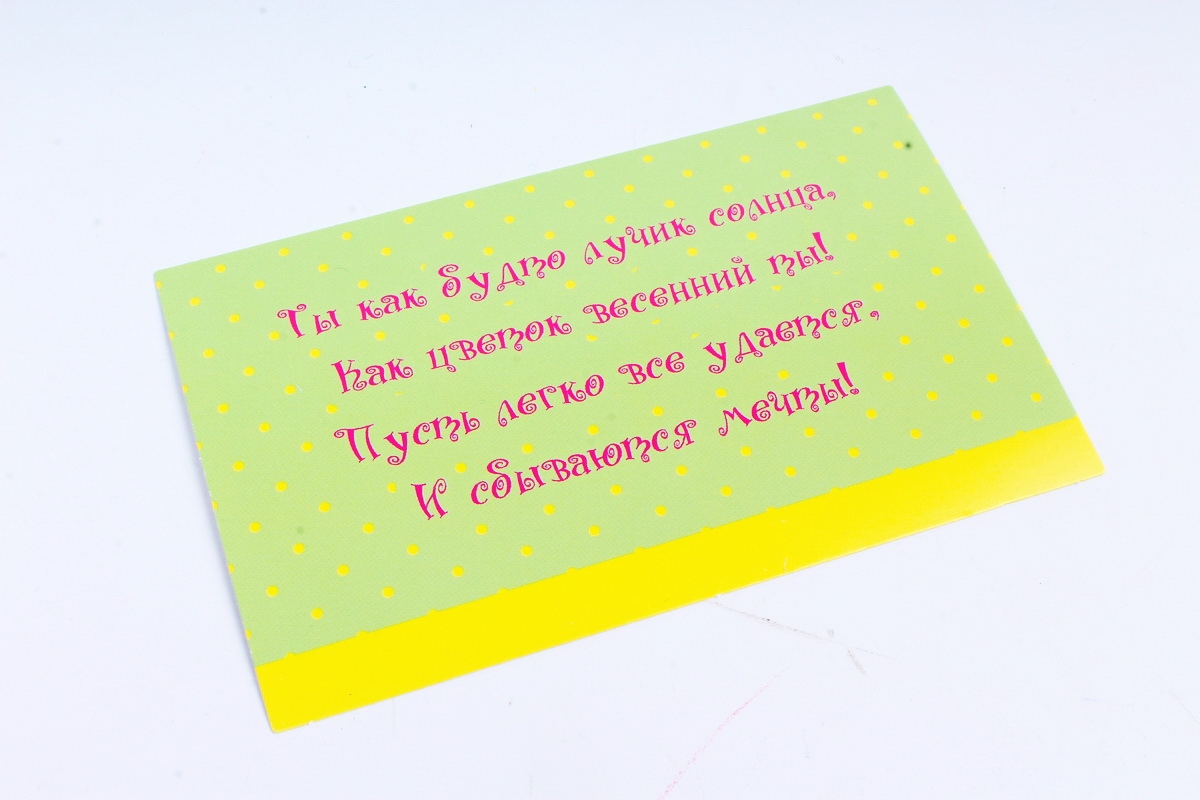 Ты как будто лучик солнца,
Как цветок весенний ты!
Пусть легко все удается,
И сбываются мечты!